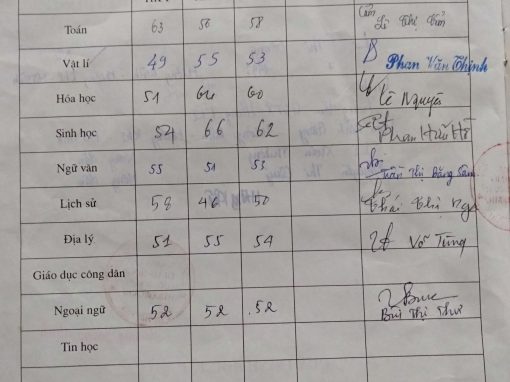 Toán 63 56 58 Lê Thị
Vật lí 49 55 53 Phan Văn Thịnh
Hóa học 51 64 60 Lê Nguyên
Sinh học 54 66 62 Phan Hữu
Ngữ văn 55 51 53 Trần Thị Băng Tâm
Lịch sử 58 46 50 Thái Thị Nga
Địa lý 51 55 54 Võ Tùng
Giáo dục công dân
Ngoại ngữ 52 52 52 Bùi Thị Thư
Tin học